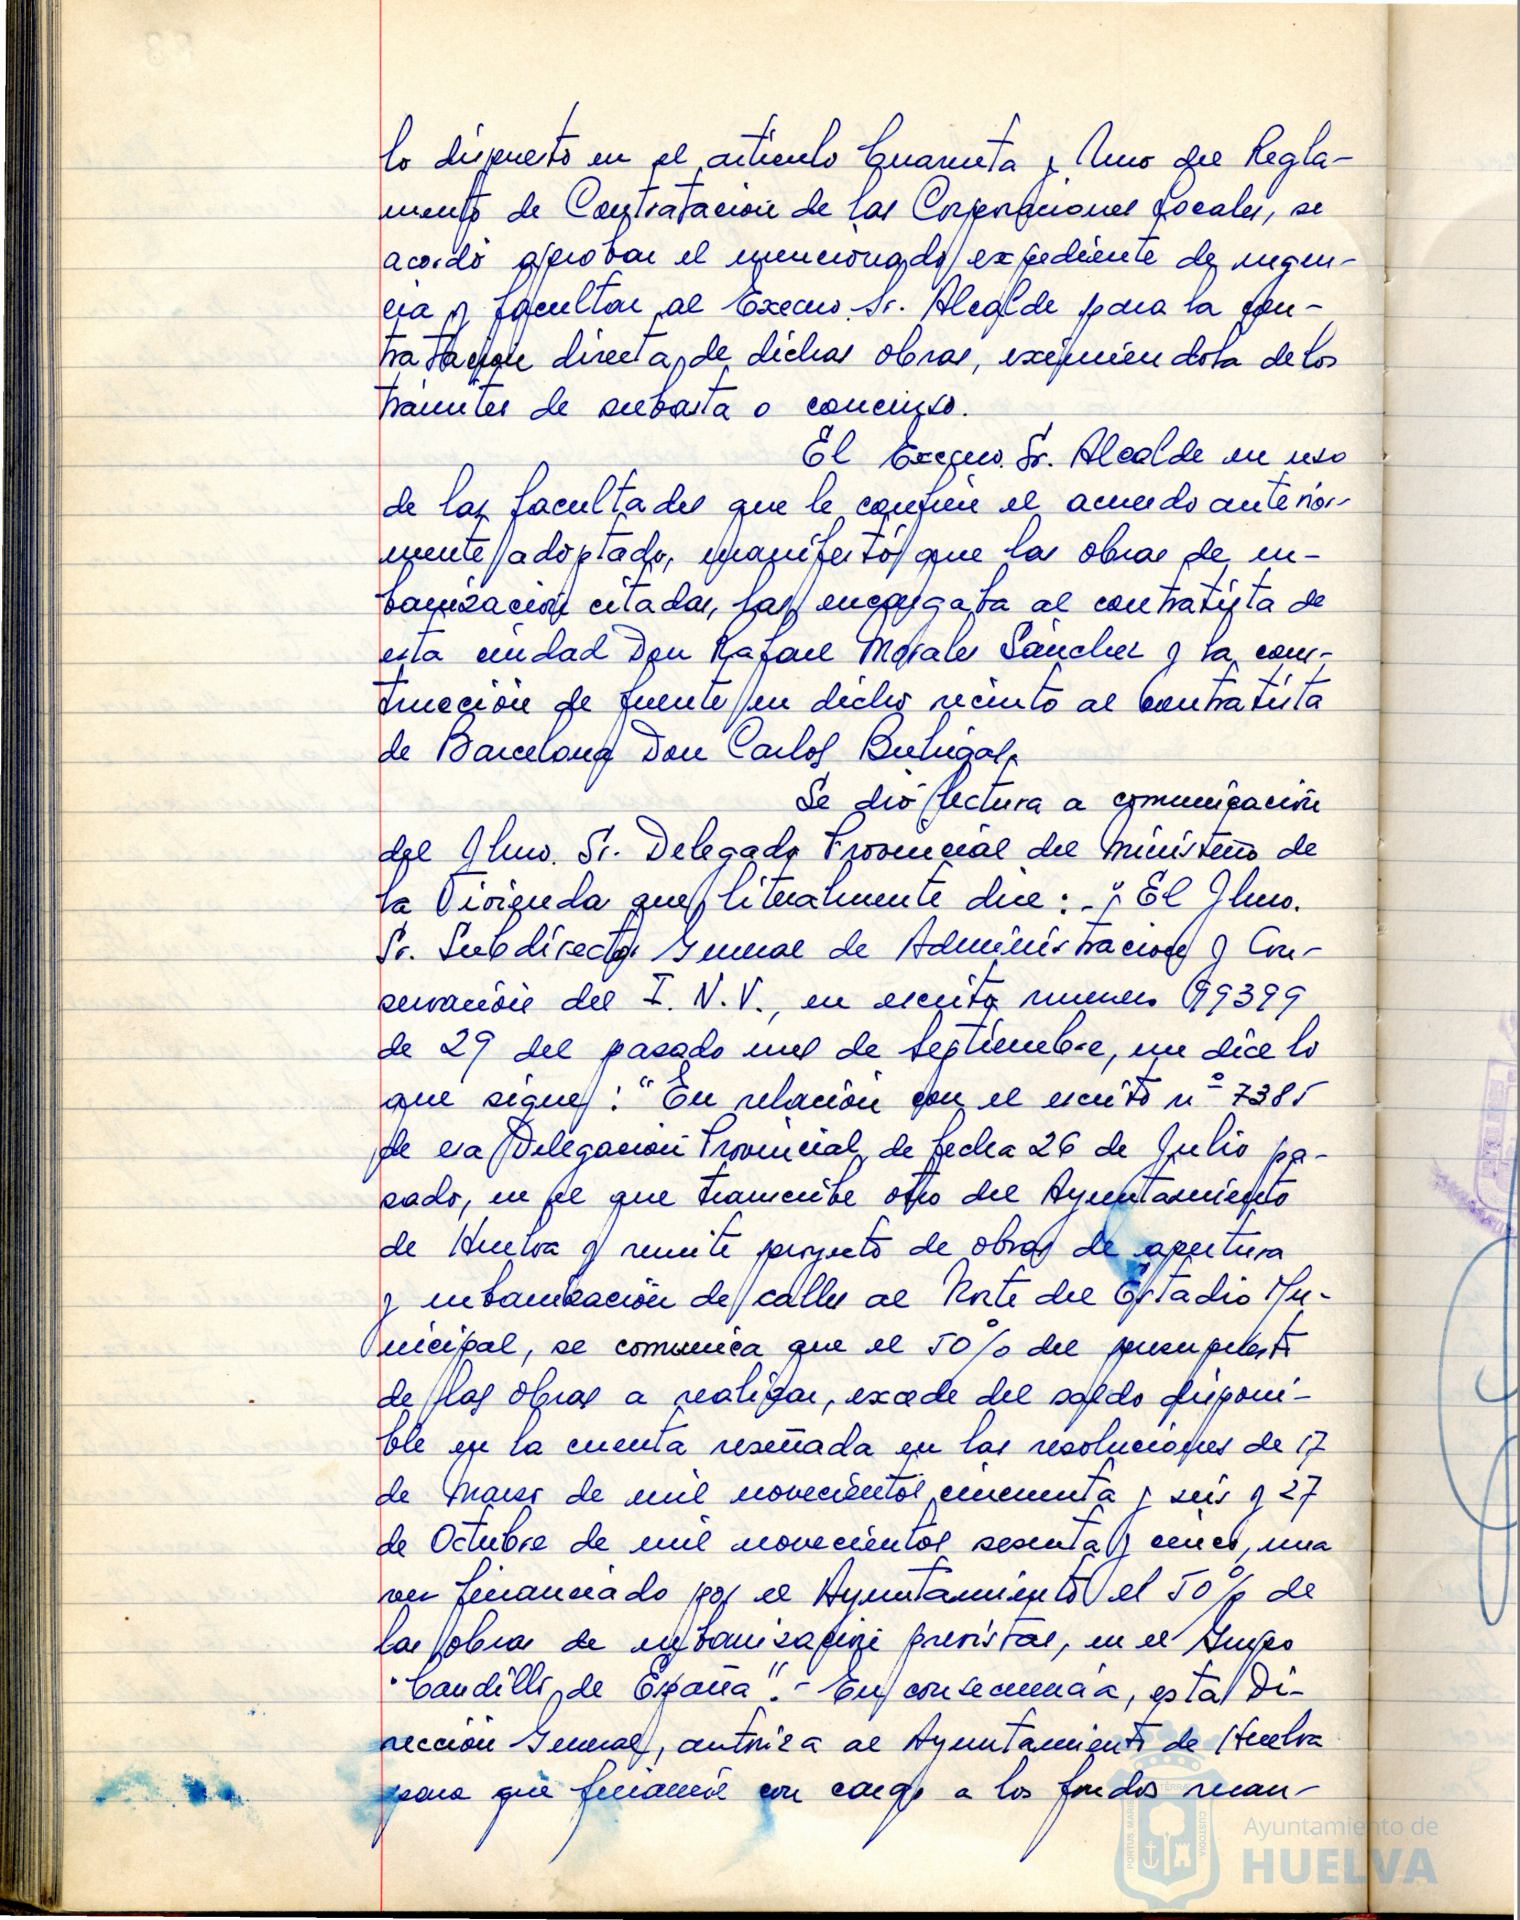 lo dispuesto en el artículo Cuarenta y Uno del Regla-
mento de Contratación de las Corporaciones Locales, se
acordó aprobar el mencionado expediente de urgen-
cia y facultar al Excmo. Sr. Alcalde para la con-
tratación directa de dichas obras, eximiendola de los
trámites de subasta o concurso.
El Excmo. Sr. Alcalde en uso
de las facultades que le confiere el acuerdo anterior-
mente adoptado, manifestó que las obras de ur-
banización citadas, las encargaba al contratista de
esta ciudad Don Rafael Morales Sánchez y la cons-
trucción de fuente en dicho recinto al contratista
de Barcelona Don Carlos Buhigas.
Se dió lectura a comunicación
del Ilmo. Sr. Delegado Provincial del Ministerio de
la Vivienda que literalmente dice: - "El Ilmo.
Sr. Subdirector General de Administración y Con-
servación del I. N. V., en escrito numero 99399
de 29 del pasado mes de Septiembre, me dice lo
que sigue: "En relación con el escrito nº 7385
de esa Delegación Provincial de fecha 26 de Julio pa-
sado, en el que transcribe otro del Ayuntamiento
de Huelva y remite proyecto de obras de apertura
y urbanización de calles al Norte del Estadio Mu-
nicipal, se comunica que el 50% del presupuesto
de las obras a realizar, excede del saldo disponi-
ble en la cuenta reseñada en las resoluciones de 17
de Marzo de mil novecientos cincuenta y seis y 27
de Octubre de mil novecientos sesenta y cinco, una
vez financiado por el Ayuntamiento el 50% de
las obras de urbanización previstas, en el Grupo
"Caudillo de España".- En consecuencia, esta Di-
rección General, autoriza al Ayuntamiento de Huelva
para que financie con cargo a los fondos rema-
Ayuntamiento de
HUELVA